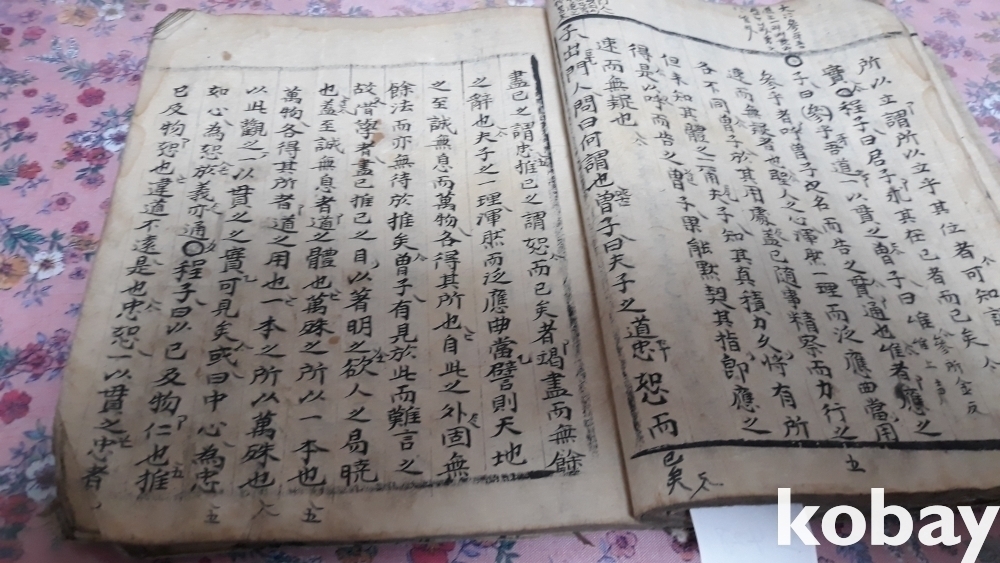 所以立謂所以立乎其位者可知
實○程子曰君子求其在己者而已矣
子曰參乎吾道一以貫之曾子曰唯
參乎者呼曾子之名而告之貫通也唯者應之
速而無疑者也聖人之心渾然一理而泛應曲當用
各不同曾子於其用處蓋已隨事精察而力行之
但未知其體之一爾夫子知其真積力久將有所
得是以呼而告之曾子果能默契其指即應之
速而無疑也
子出門人問曰何謂也曾子曰夫子之道忠恕而
已矣
盡己之謂忠推己之謂恕而已矣者竭盡而無餘
之辭也夫子之一理渾然而泛應曲當譬則天地
之至誠無息而萬物各得其所也自此之外固無
餘法而亦無待於推矣曾子有見於此而難言之
故借學者盡己推己之目以著明之欲人之易曉
也蓋至誠無息者道之體也萬殊之所以一本也
萬物各得其所者道之用也一本之所以萬殊也
以此觀之一以貫之之實可見矣或曰中心為忠
如心為恕於義亦通○程子曰以己及物仁也推
己及物恕也違道不遠是也忠恕一以貫之忠者
kobay